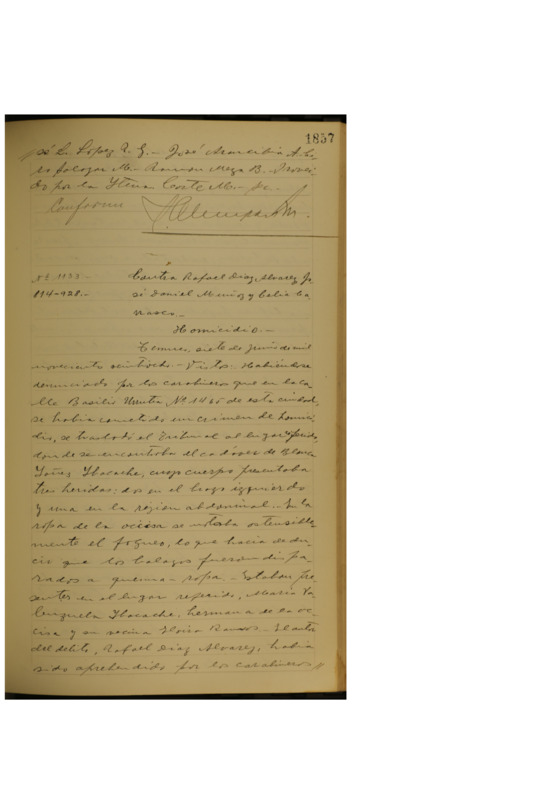 1857
sé L. López R. G.- José Arancibia A. Co
do por la Iltma Corte M.- pc.
Conforme
Nº 1193
194-928.-
Contra Rafael Diaz Alvarez Jo
sé Daniel Muñoz y Celia Ca
rrasco.-
Homicidio.-
Temuco, siete de Junio de mil
novecientos veintiocho.- Vistos: Habiéndose
denunciado por los carabineros que en la ca
lle Basilio Urrutia Nº 1460 de esta ciudad,
se había cometido un crimen de homici
dio, se trasladó el Tribunal al lugar referido
donde se encontraba el cadáver de Blanca
Ilocache, cuyo cuerpo presentaba
tres heridas; dos en el brazo izquierdo
y una en la región abdominal.- En la
ropa de la occisa se notaba ostensible
mente el fogueo, lo que hacía dedu
cir que los balazos fueron dispa
rados a quema-ropa.- Estaban pre
sentes en el lugar referido, María Va
lenzuela Ilocache, hermana de la oc
cisa y su vecina Ramos.- El autor
del delito, Rafael Diaz Alvarez, había
sido aprehendido por los carabineros